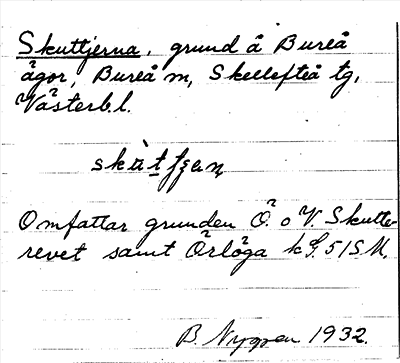 Skuttjerna, grund å Bureå
ägor, Bureå sn, Skellefteå tg,
Västerb.l.
Omfattar grunden Ö. o V. Skutte-
revet samt Örlöga k G. 51 S M,
B. Nygren 1932.